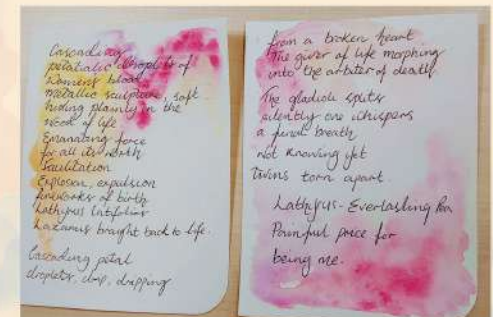 Cascading
petalialic droplets of
Womens blood
Metallic sculpture, soft
hiding plainly in the
of life
Emanating force
for all its worth
Facilitation
Explosion, expulsion
fireworks of birth
Lathyrus latifolius
Lazarus braight back to life.
Cascading petal
droplets, drip, dripping
from a broken heart
The giver of life morphing
into the arbiter of death
The gladioli splits
silently one whispers
a final breath
not knowing yet
twins torn apart.
Lathyrus - Everlasting Pea
Painful price for
being me.